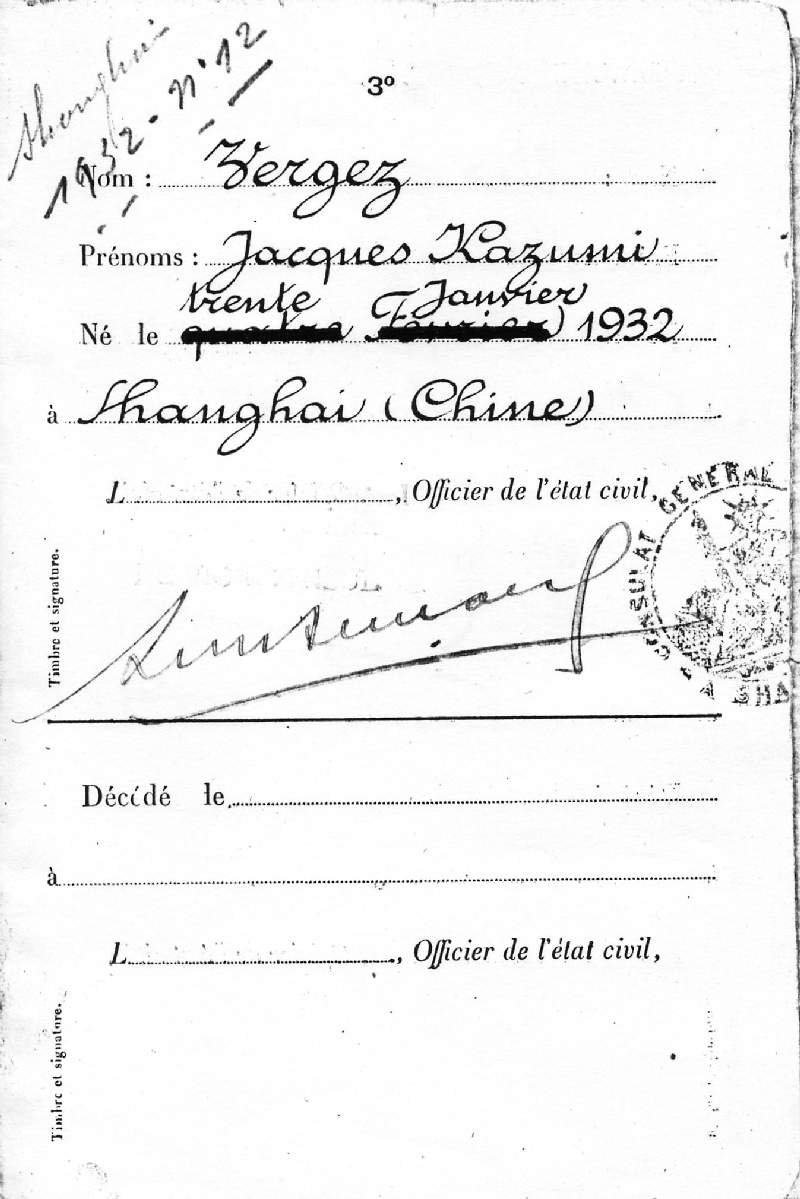 Shanghai
1932 - n° 12
3°
Nom : Vergez
Prénoms : Jacques Kazumi
trente Janvier
Né le quatre Février 1932
à Shanghai (Chine)
L , Officier de l'état civil,
CONSULAT GENERAL
SHA
Timbre et signature.
Décédé le
à
L , Officier de l'état civil,
Timbre et signature.